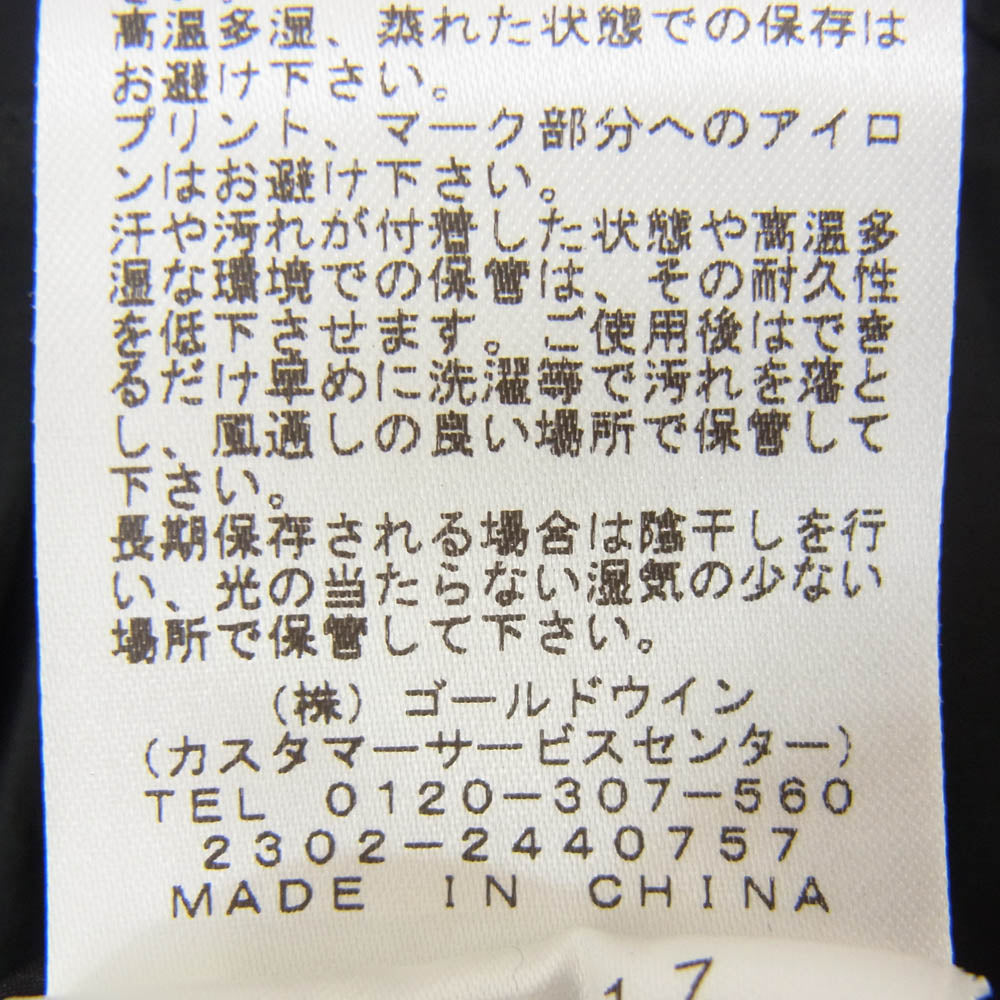 高温多湿、蒸れた状態での保存は
お避け下さい。
プリント、マーク部分へのアイロ
ンはお避け下さい。
汗や汚れが付着した状態や高温多
湿な環境での保管は、その耐久性
を低下させます。ご使用後はでき
るだけ早めに洗濯等で汚れを落と
し、風通しの良い場所で保管して
下さい。
長期保存される場合は陰干しを行
い、光の当たらない湿気の少ない
場所で保管して下さい。
(株) ゴールドウイン
(カスタマーサービスセンター)
TEL 0120-307-560
2302-2440757
MADE IN CHINA